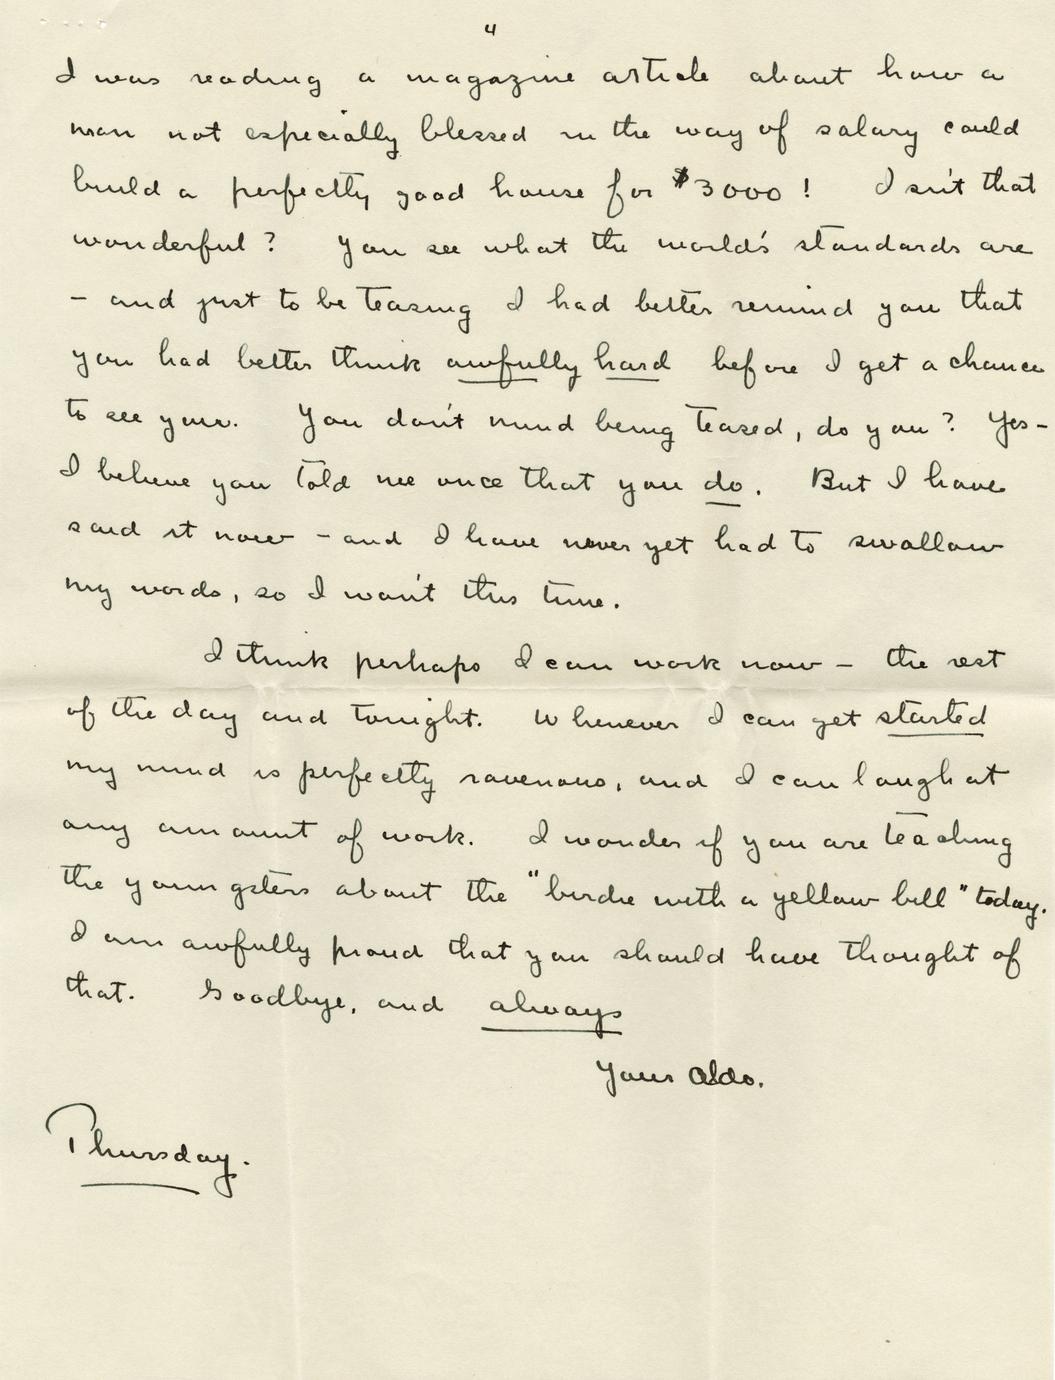 4
I was reading a magazine article about how a
man not especially blessed in the way of salary could
build a perfectly good house for $3000! Isn't that
wonderful? You see what the world's standards are
- and just to be teasing I had better remind you that
you had better think awfully hard before I get a chance
to see you. You don't mind being teased, do you? Yes-
I believe you told me once that you do. But I have
said it now - and I have never yet had to swallow
my words, so I won't this time.
I think perhaps I can work now - the rest
of the day and tonight. Whenever I can get started
my mind is perfectly ravenous, and I can laugh at
any amount of work. I wonder if you are teaching
the youngsters about the "birdie with a yellow bill" today.
I am awfully proud that you should have thought of
that. Goodbye, and always
Your Aldo.
Thursday.